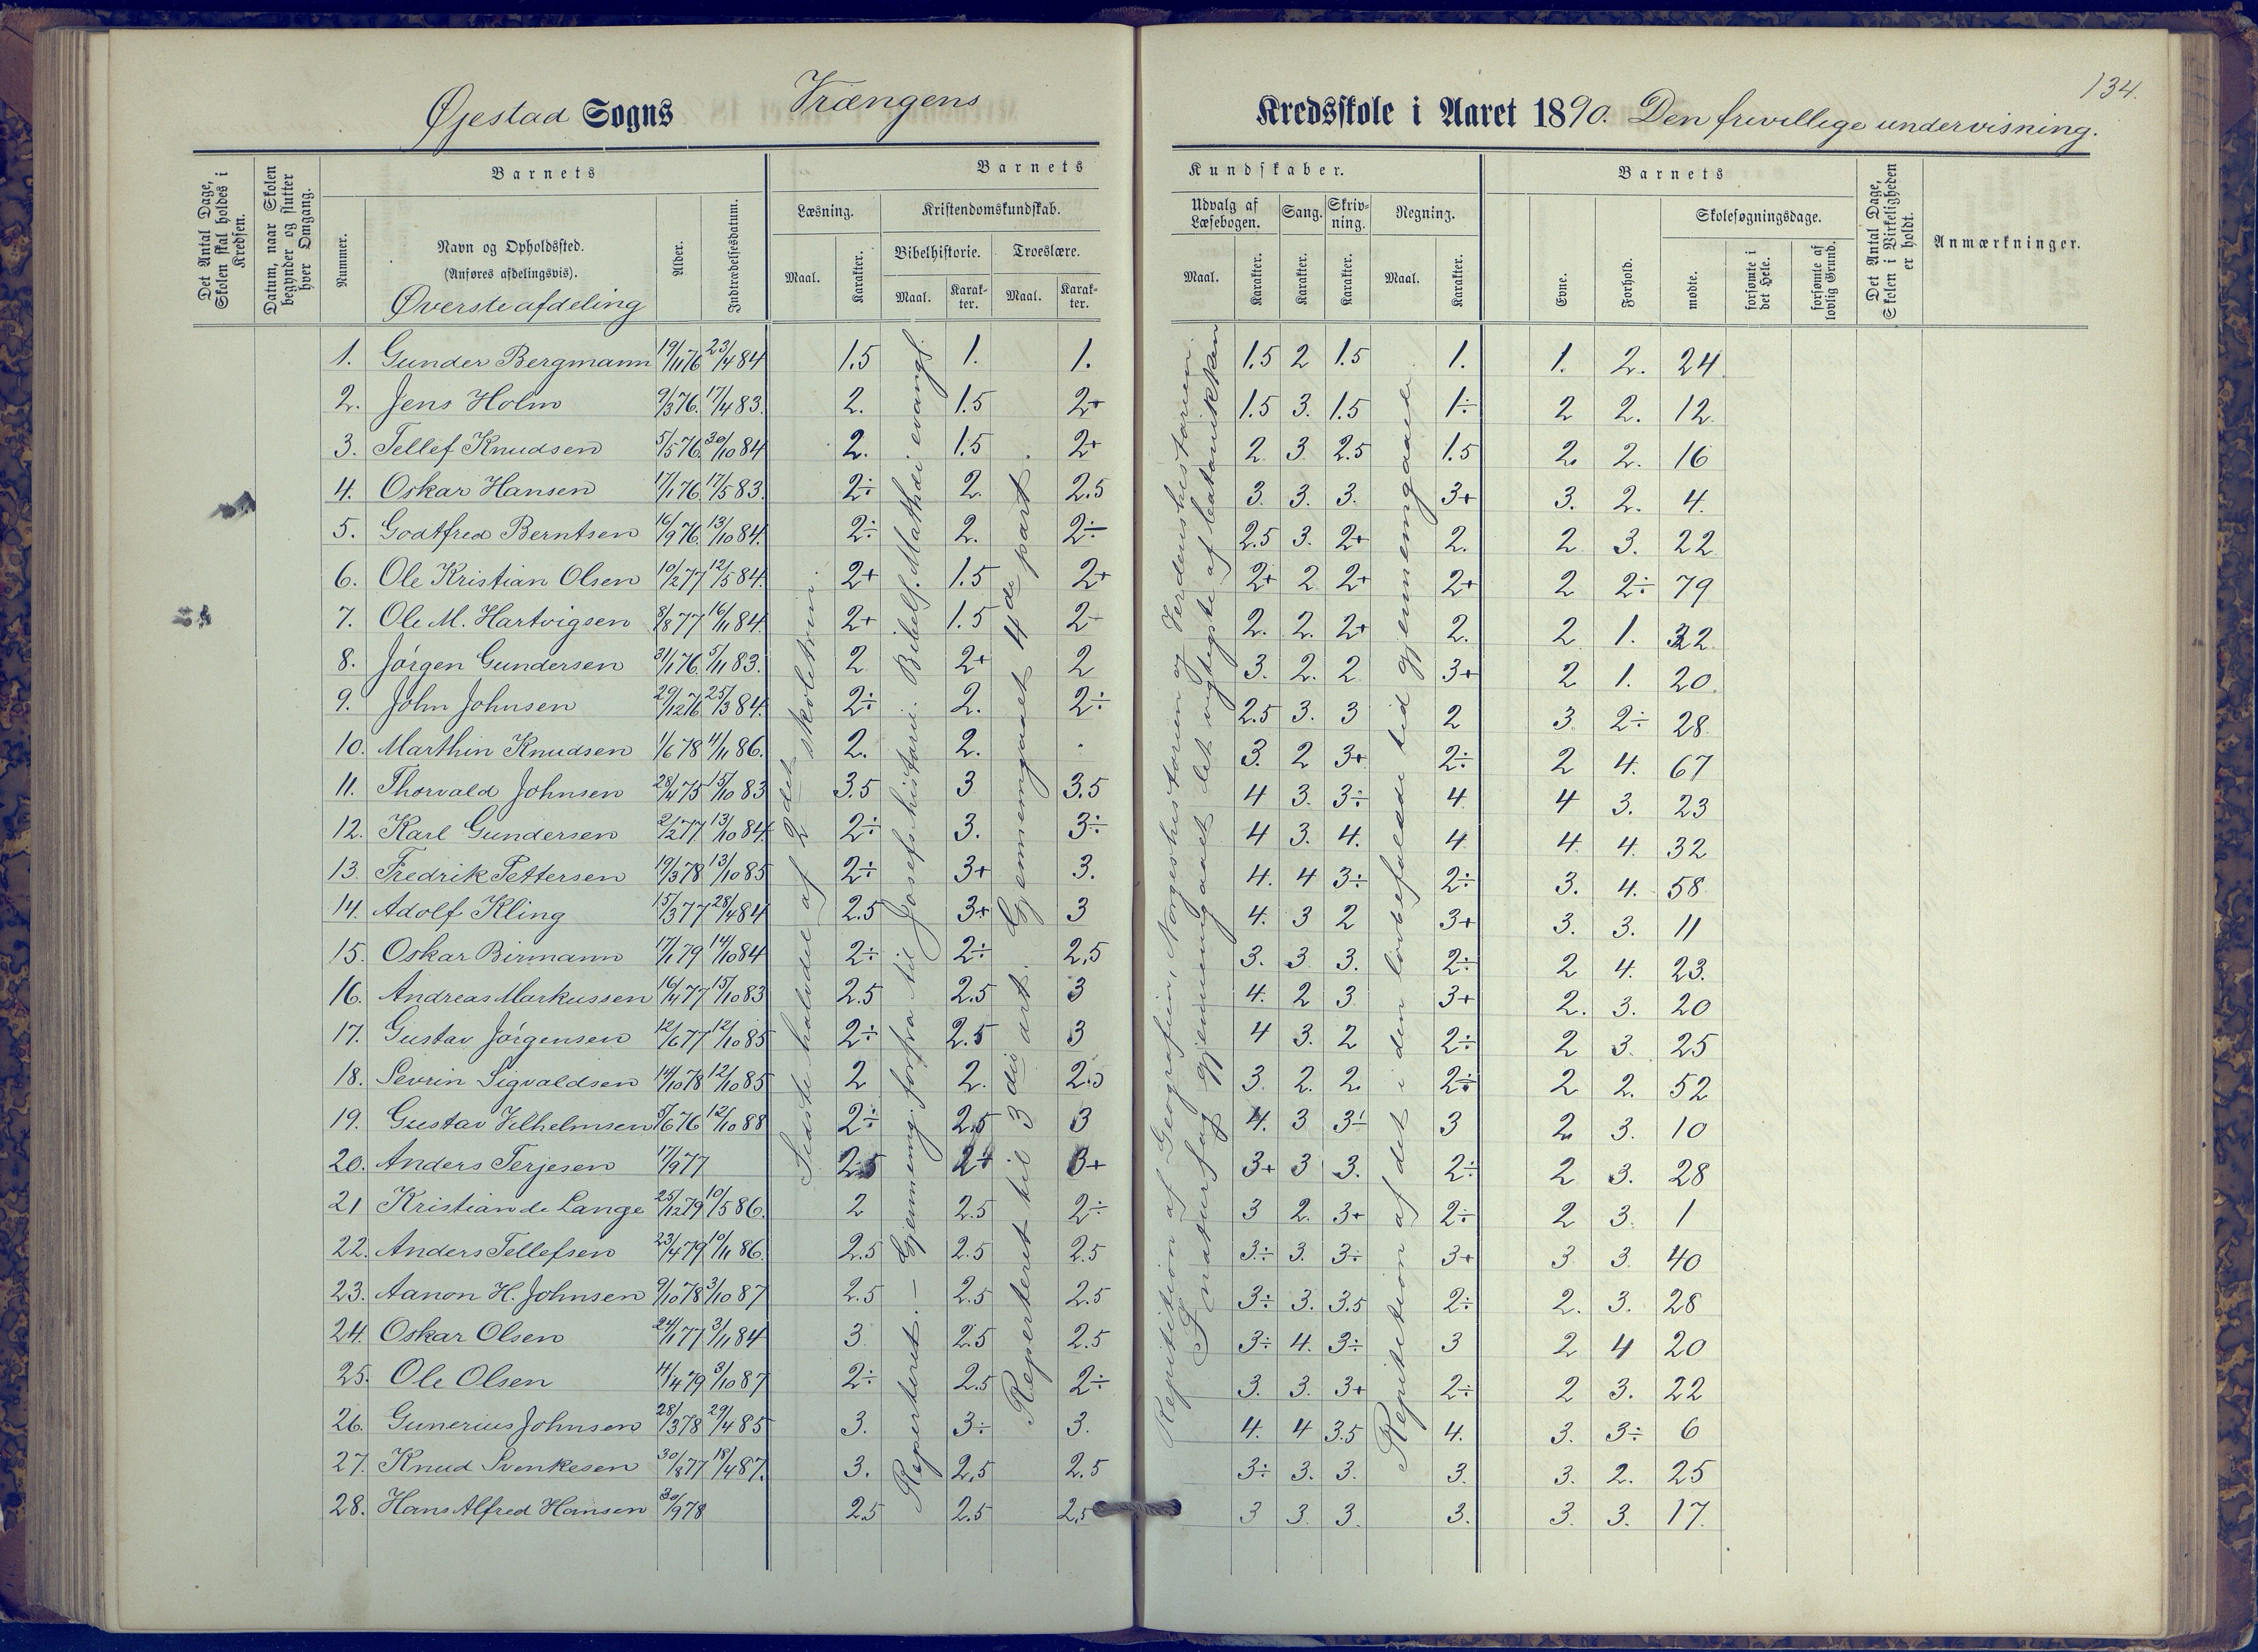 134.
Øjestad Sogns Vrængens Kredsskole i Aaret 1890. Den frivillige undervisning.
Det Antal Dage, Skolen skal holdes i Kredsen.
Datum, naar Skolen begynder og slutter hver Omgang.
Nummer.
Barnets
Navn og Opholdssted.
(Anføres afdelingsvis).
Øverste afdeling
Alder.
Indtrædelsesdatum.
Barnets Kundskaber.
Læsning.
Maal.
Karakter.
Kristendomskundskab.
Bibelhistorie.
Maal.
Karakter.
Troeslære.
Maal.
Karakter.
Udvalg af Læsebogen.
Maal.
Karakter.
Sang.
Karakter.
Skrivning.
Karakter.
Regning.
Maal.
Karakter.
Barnets
Evne.
Forhold.
Skolesøgningsdage.
mødte.
forsømte i det Hele.
forsømte af lovlig Grund.
Det Antal Dage, Skolen i Virkeligheden er holdt.
Anmærkninger.
1. Gunder Bergmann 19/11 76 23/4 84 1.5 1. 1. 1.5 2 1.5 1. 1. 2. 24
2. Jens Holm 9/3 76. 17/4 83. 2. 1.5 2+ 1.5 3. 1.5 1÷ 2 2. 12
3. Tellef Knudsen 5/5 76 30/10 84 2. 1.5 2+ 2 3 2.5 1.5 2. 2. 16
4. Oskar Hansen 17/1 76 17/5 83. 2÷ 2. 2.5 3. 3. 3. 3+ 3. 2. 4.
5. Godtfred Berntsen 16/9 76. 13/10 84. 2÷ 2. 2÷ 2.5 3. 2+ 2. 2 3. 22
6. Ole Kristian Olsen 10/2 77 12/5 84. 2+ 1.5 2+ 2+ 2 2+ 2+ 2 2÷ 79
7. Ole M. Hartvigsen 8/8 77 16/11 84. 2+ 1.5 2- 2. 2. 2+ 2. 2 1. 32
8. Jørgen Gundersen 31/1 76. 5/11 83. 2 2+ 2 3. 2. 2 3+ 2 1. 20.
9. John Johnsen 29/12 76 25/3 84. 2÷ 2. 2÷ 2.5 3. 3 2 3 2÷ 28
10. Marthin Knudsen 1/6 78 11/11 86. 2. 2. 3. 2 3+ 2÷ 2 4. 67
11. Thorvald Johnsen 28/4 75 15/10 83 3.5 3 3.5 4 3. 3÷ 4. 4 3. 23
12. Karl Gundersen 2/2 77. 13/10 84. 2÷ 3. 3÷ 4 3. 4. 4 4 4. 32
13. Fredrik Pettersen 19/3 78 13/10 85 2÷ 3+ 3. 4. 4 3÷ 2÷ 3. 4. 58
14. Adolf Kling 15/3 77 28/4 84 2.5 3+ 3 4. 3 2 3+ 3. 3. 11
15. Oskar Birmann 17/1 79 14/10 84 2÷ 2÷ 2.5 3. 3 3. 2÷ 2 4. 23.
16. Andreas Markussen 16/4 77 15/10 83 2.5 2.5 3 4. 2 3 3+ 2. 3. 20
17. Gustav Jørgensen 12/6 77 12/10 85 2÷ 2.5 3 4 3. 2 2÷ 2 3. 25
18. Sevrin Sigvaldsen 14/10 78 12/10 85 2 2. 2.5 3. 2. 2. 2÷ 2 2. 52
19. Gustav Vilhelmsen 5/6 76 12/10 88 2÷ 2.5 3 4. 3 3÷ 3 2. 3. 10
20. Anders Terjesen 17/9 77 2.5 2+ 3+ 3+ 3 3. 2÷ 2 3. 28
21 Kristian de Lange 25/12 79 10/5 86. 2 2.5 2÷ 3 2. 3+ 2÷ 2 3. 1
22. Anders Tellefsen 23/4 79 10/11 86. 2.5 2.5 2.5 3÷ 3. 3÷ 3+ 3 3. 40
23. Aanon H. Johnsen 9/10 78 3/10 87 2.5 2.5 2.5 3÷ 3. 3.5 2÷ 2. 3. 28
24. Oskar Olsen 24/1 77 3/11 84 3 2.5 2.5 3÷ 4. 3÷ 3 2 4 20
25. Ole Olsen 14/4 79 3/10 87 2÷ 2.5 2÷ 3. 3. 3+ 2÷ 2 3. 22
26. Gunerius Johnsen 28/3 78 29/4 85 3. 3÷ 3. 4. 4 3.5 4. 3. 3÷ 6
27. Knud Svenkesen 30/8 77 18/4 87. 3. 2.5 2.5 3÷ 3. 3. 3. 3. 2. 25
28. Hans Alfred Hansen 30/9 78 2.5 2.5 2.5 3 3. 3. 3. 3. 3. 17.
Sidste halvdel af 2det skoletrin.
Repeteret. – Gjennemg. forfra til Josefs historie. Bibelf. Mathdi evangl.
Repeteret til 3die art. Gjennemgaaet 4de part.
Repitition af Geografien, Norgeshistorien og Verdenshistorien.
I naturfag gjennemgaaet det vigtigste af botanikken
Repitition af det i den lovbefalede tid gjennemgaaede.